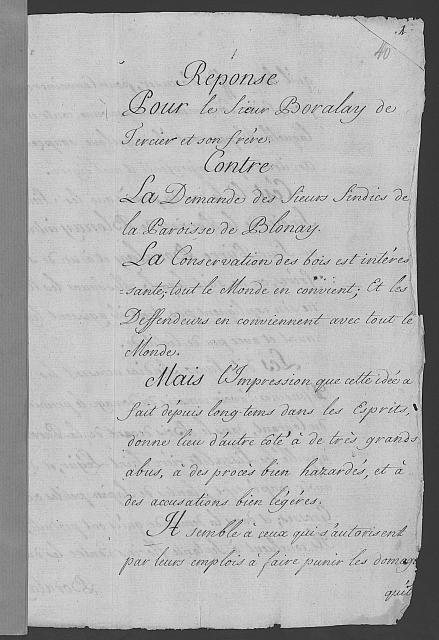 1
40
Reponse
Pour le Sieur Boralay de
Tercier et son frère.
Contre
La Demande des Sieurs Sindics de
la Paroisse de Blonay.
La Conservation des bois est intéres
=sante, tout le Monde en convient; Et les
Deffendeurs en conviennent avec tout le
Monde.
Mais l'Impression que cette idée a
fait dépuis long-tims dans les Esprits,
donne lieu d'autre coté à de très grands
abus, à des procès bien hazardés, et à
des accusations bien légéres.
Il semble à ceux qui s'autorisent
par leurs emplois à faire punir les domag